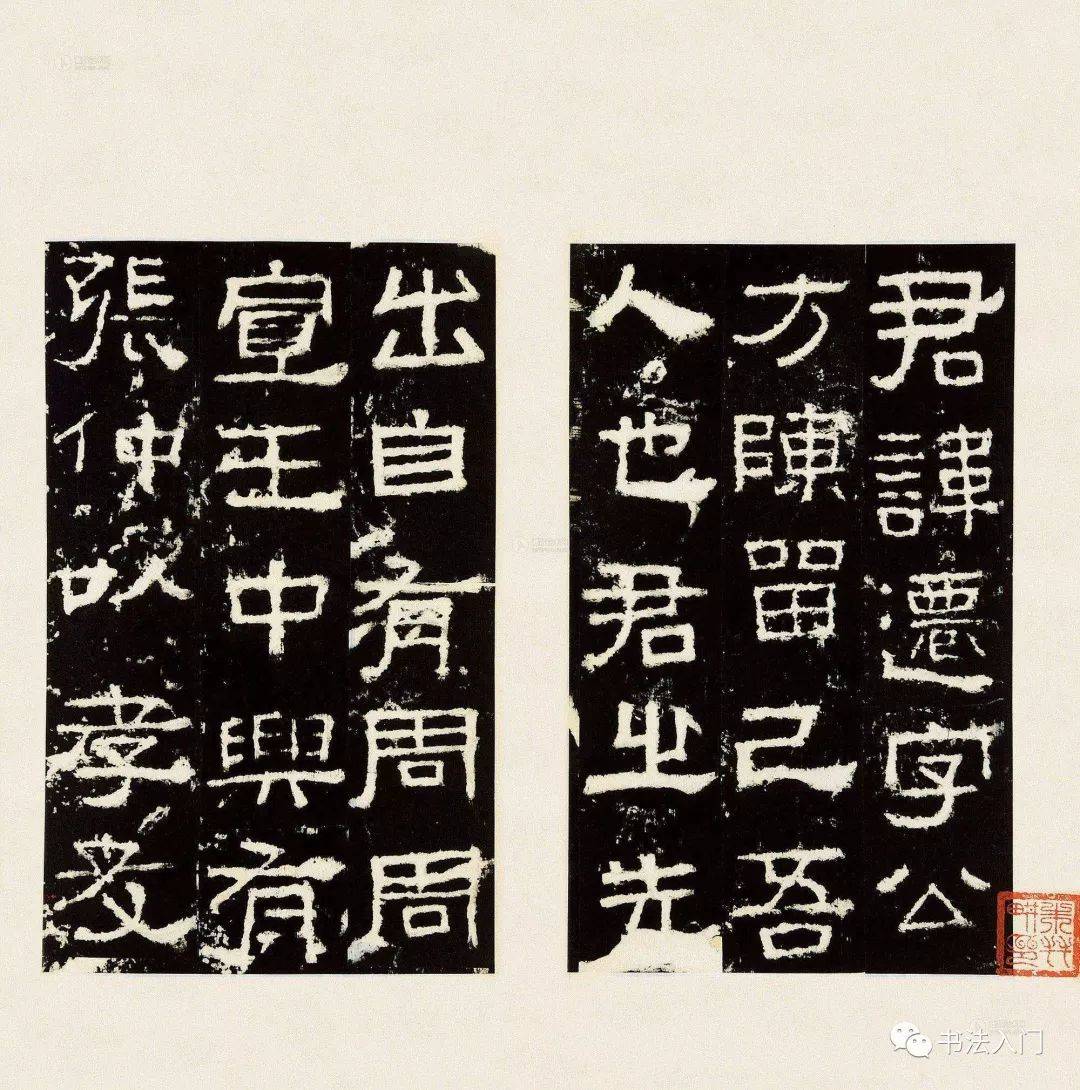 君諱遷字公
方陳留己吾
人也君之先
出自有周周
宣王中興有
張仲以孝友
书法入门